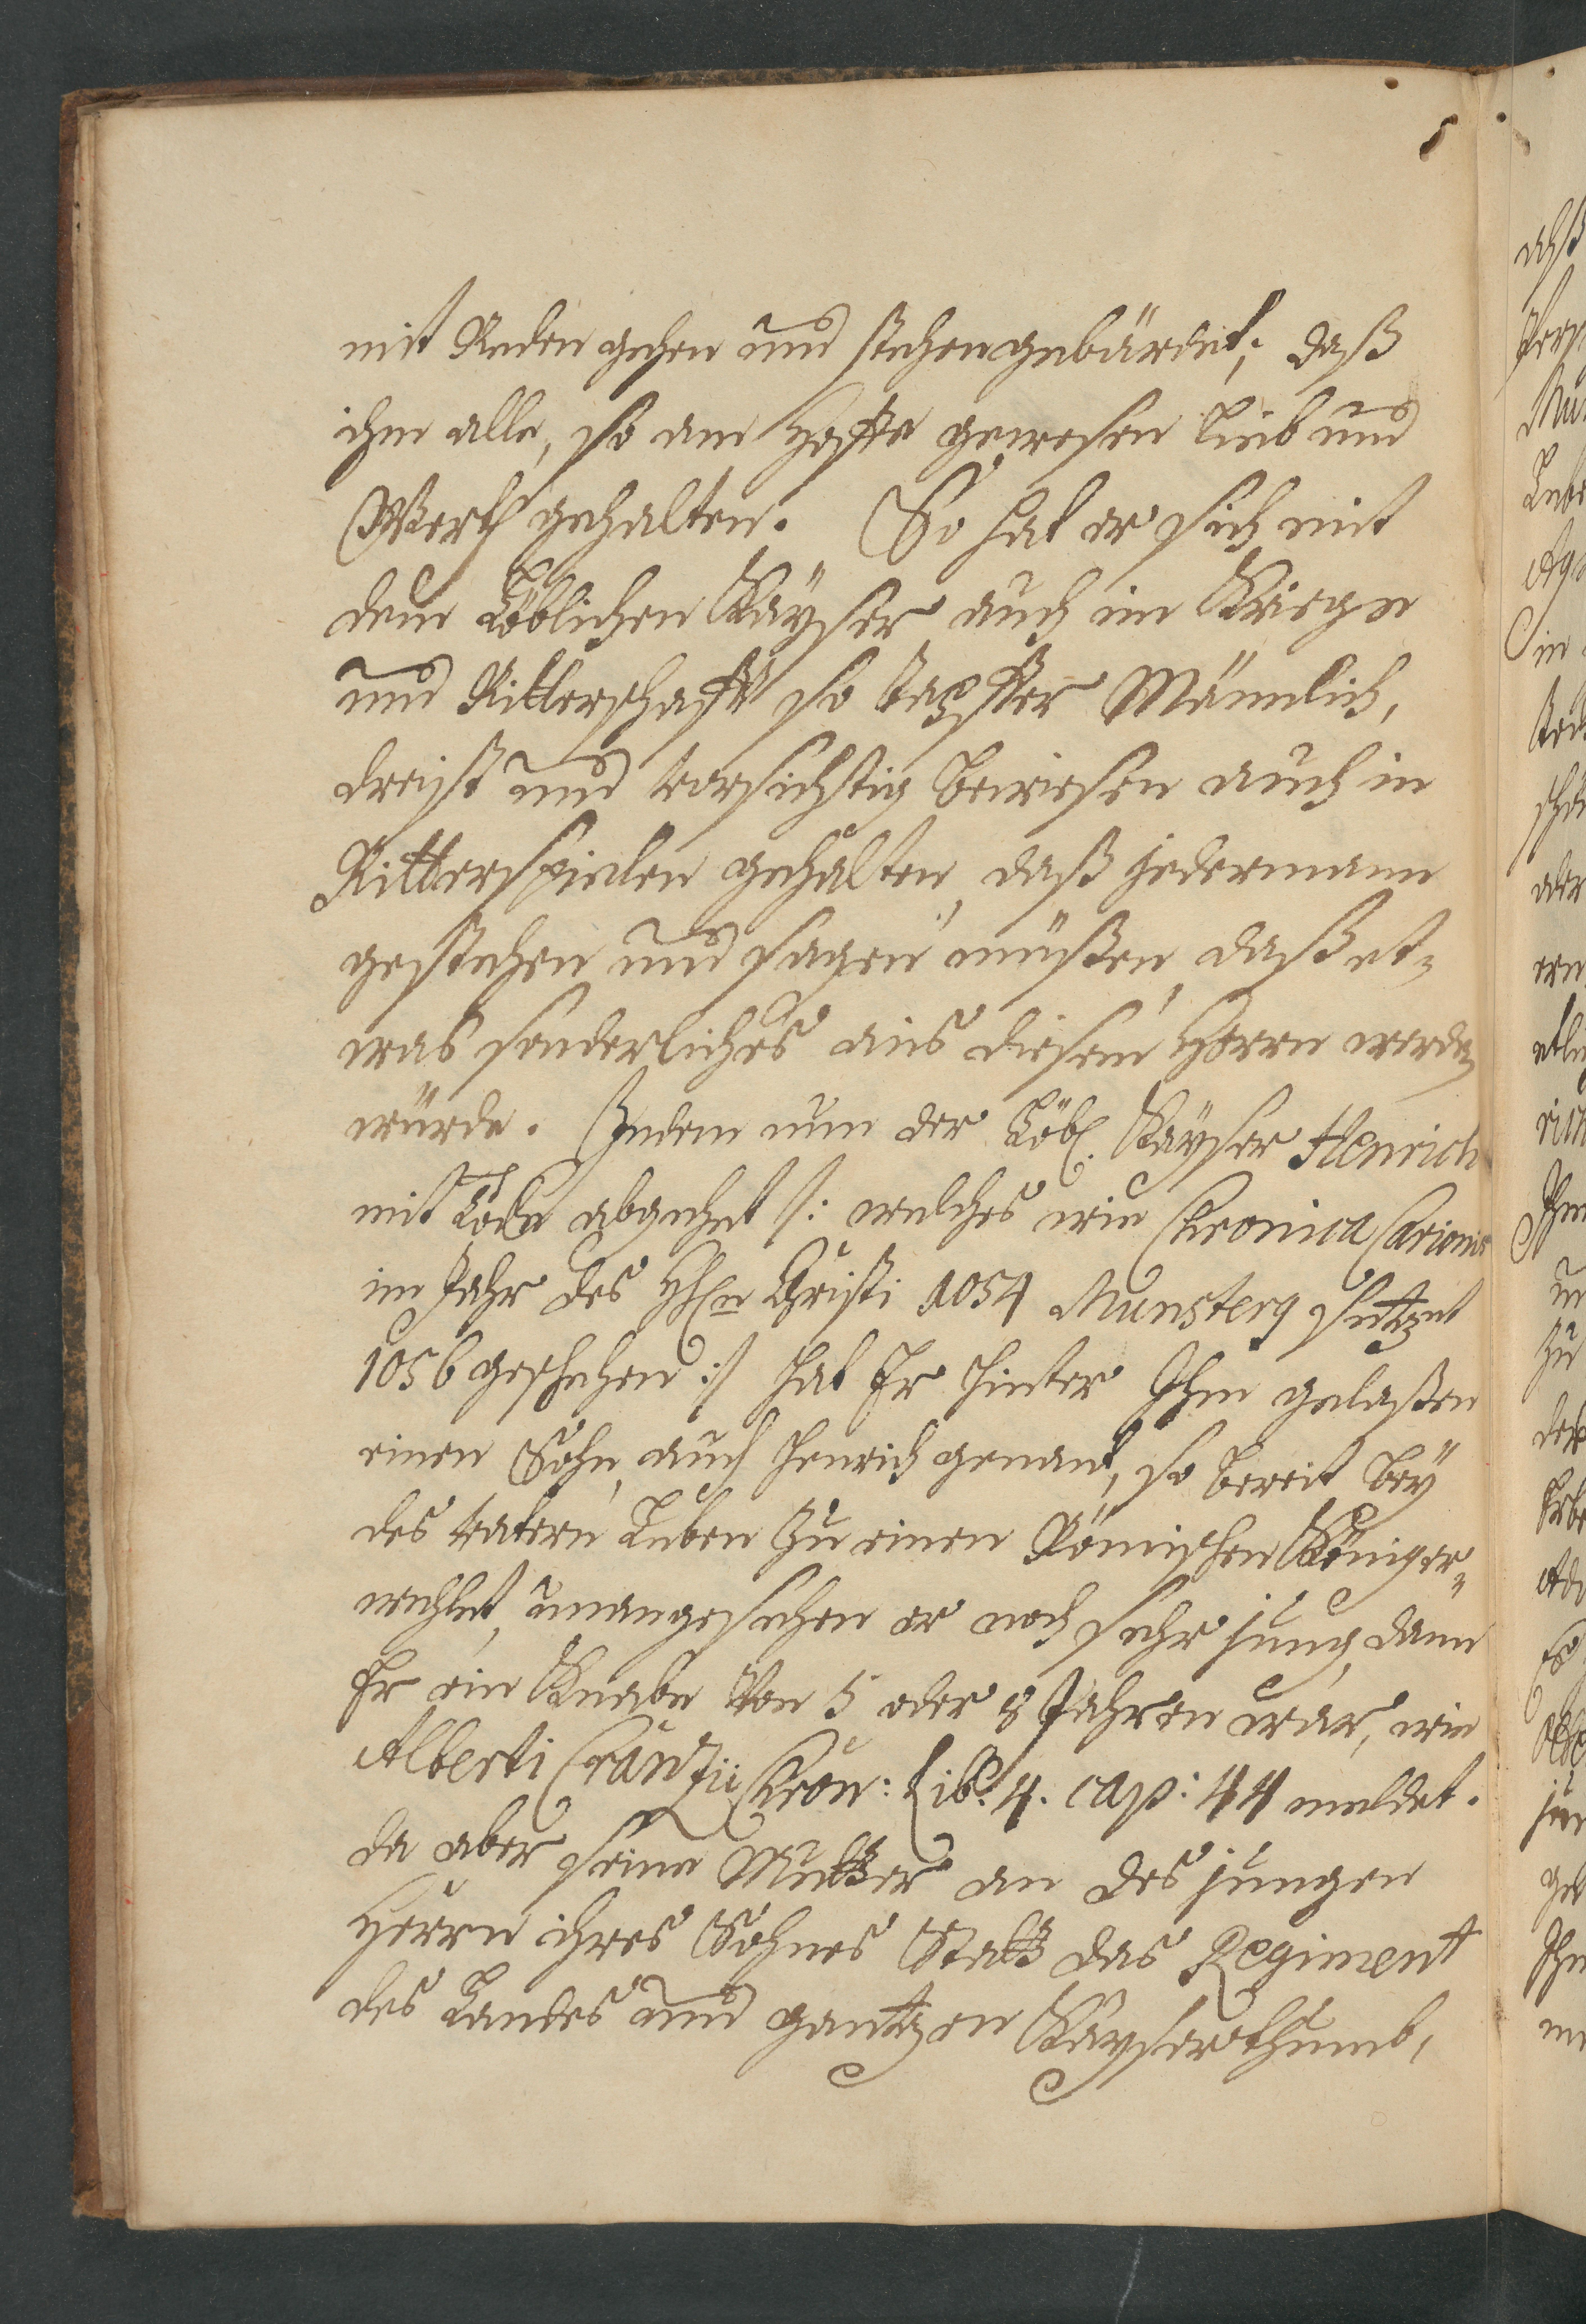 mit Reden gehen und stehen gebärdet, daß
ihm alle, so am Hoffe gewesen Lieb und
Werth gehalten. So hat er sich mit
dem Löblichen Kayser auch im Kriege
und Ritterschafft so tapffer Männlich,
dreist und vorsichtig bewiesen auch in
Ritterspielen gehalten, daß jedermann
gestehen und sagen müßen, daß et-
was sonderliches aus diesem Herrn werden
würde. Indem nun der Löbl. Kayser Henrich
mit Tode abgehet /: welches wie Chronica Carionis
im Jahr des HErrn Christi 1054 Munsterg setzet
1056 geschehen :/ hat Er hinter Ihm gelaßen
einen Sohn, auch Henrich genant, so bereit bey
des Vatern Leben zu einen Römischen König er-
wehlet, unangesehen er noch sehr jung, dann
Er ein Knabe von 5 oder 8 Jahren war, wie
Alberti Crantzii Chron: Lib. 4. cap: 44 meldet.
da aber seine Mutter an des jungen
Herrn ihres Sohnes Statt das Regiment
des Landes und gantzen Kayserthumb,